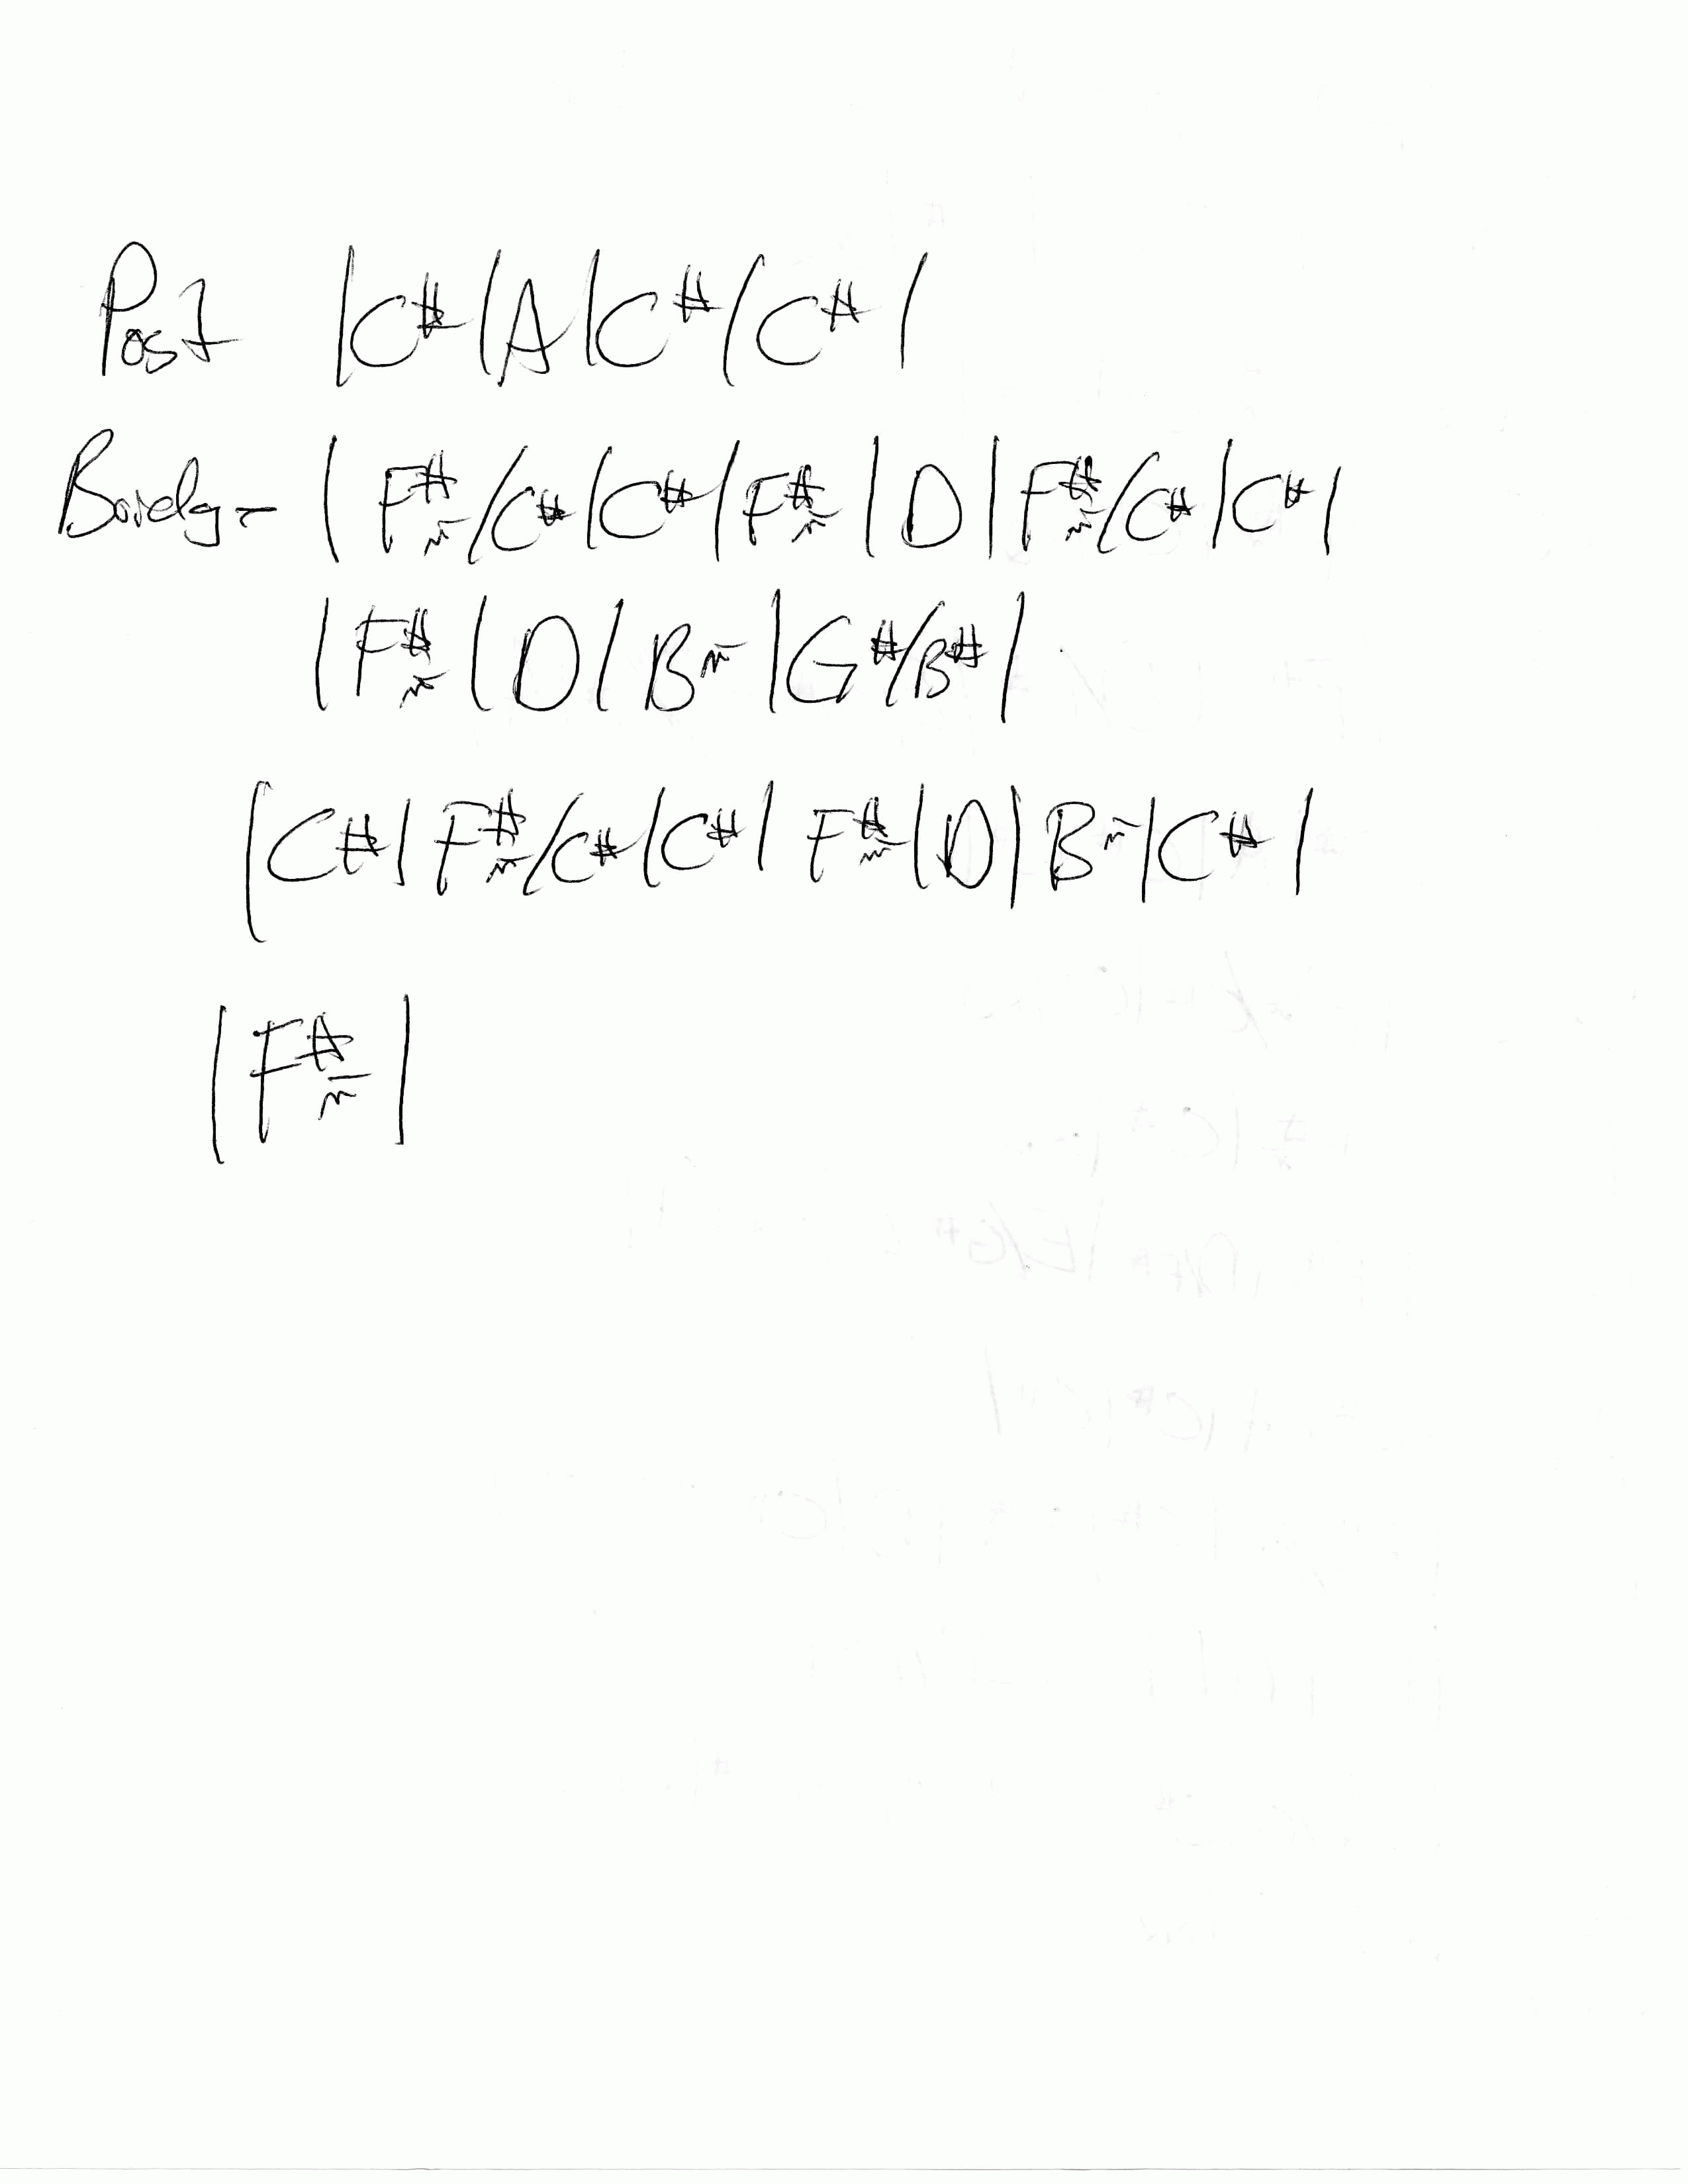 Post |C#|A|C#|C#|
Bridge |F#m/C#|C#|F#m|D|F#m/C#|C#|
|F#m|D|Bm|G#/B#|
|C#|F#m/C#|C#|F#m|D|Bm|C#|
|F#m|